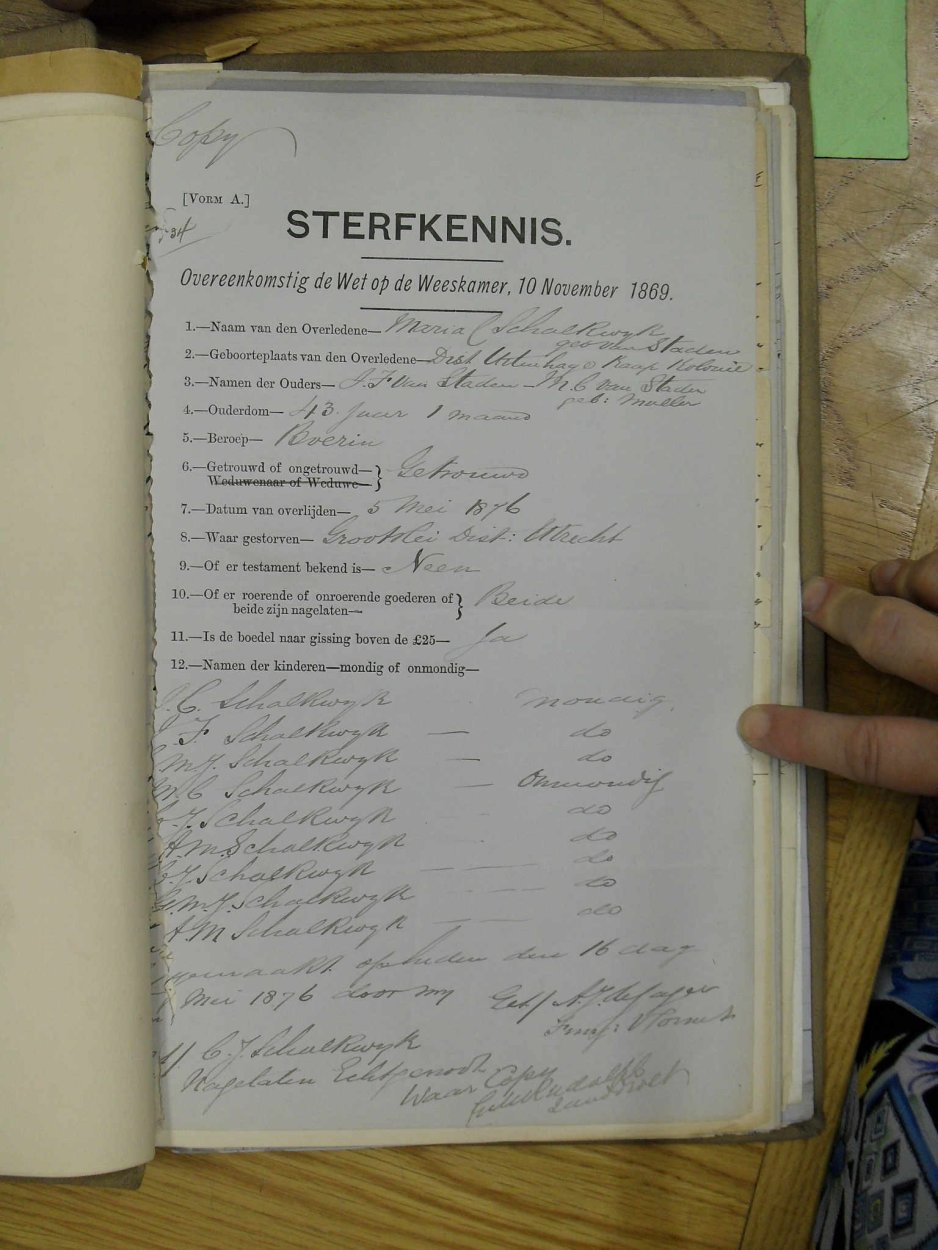 Copy
[VORM A.]
34
STERFKENNIS.
Overeenkomstig de Wet op de Weeskamer, 10 November 1869.
1.—Naam van den Overledene— Maria C Schalkwyk
geb van Staden
2.—Geboorteplaats van den Overledene— Dist Uitenhage Kaap Kolonie
3.—Namen der Ouders— J. F van Staden – M. C van Staden
geb: Muller
4.—Ouderdom— 43 Jaar 1 maand
5.—Beroep— Boerin
6.—Getrouwd of ongetrouwd— Getrouwd
Weduwenaar of Weduwe—
7.—Datum van overlijden— 5 Mei 1876
8.—Waar gestorven— Grootvlei Dist: Utrecht
9.—Of er testament bekend is— Neen
10.—Of er roerende of onroerende goederen of Beide
beide zijn nagelaten—
11.—Is de boedel naar gissing boven de £25— Ja
12.—Namen der kinderen—mondig of onmondig—
C. Schalkwyk mondig
F Schalkwyk — do
M J. Schalkwyk — do
M. C Schalkwyk — Onmondig
J. Schalkwyk do
A. M. Schalkwyk do
J. Schalkwyk do
G. M. J. Schalkwyk do
A M Schalkwyk do
gemaakt op heden den 16 dag
Mei 1876 door my Get/ A. J.
C. J. Schalkwyk
Nagelaten Echtgenoot
Waar Copy
Landdrost